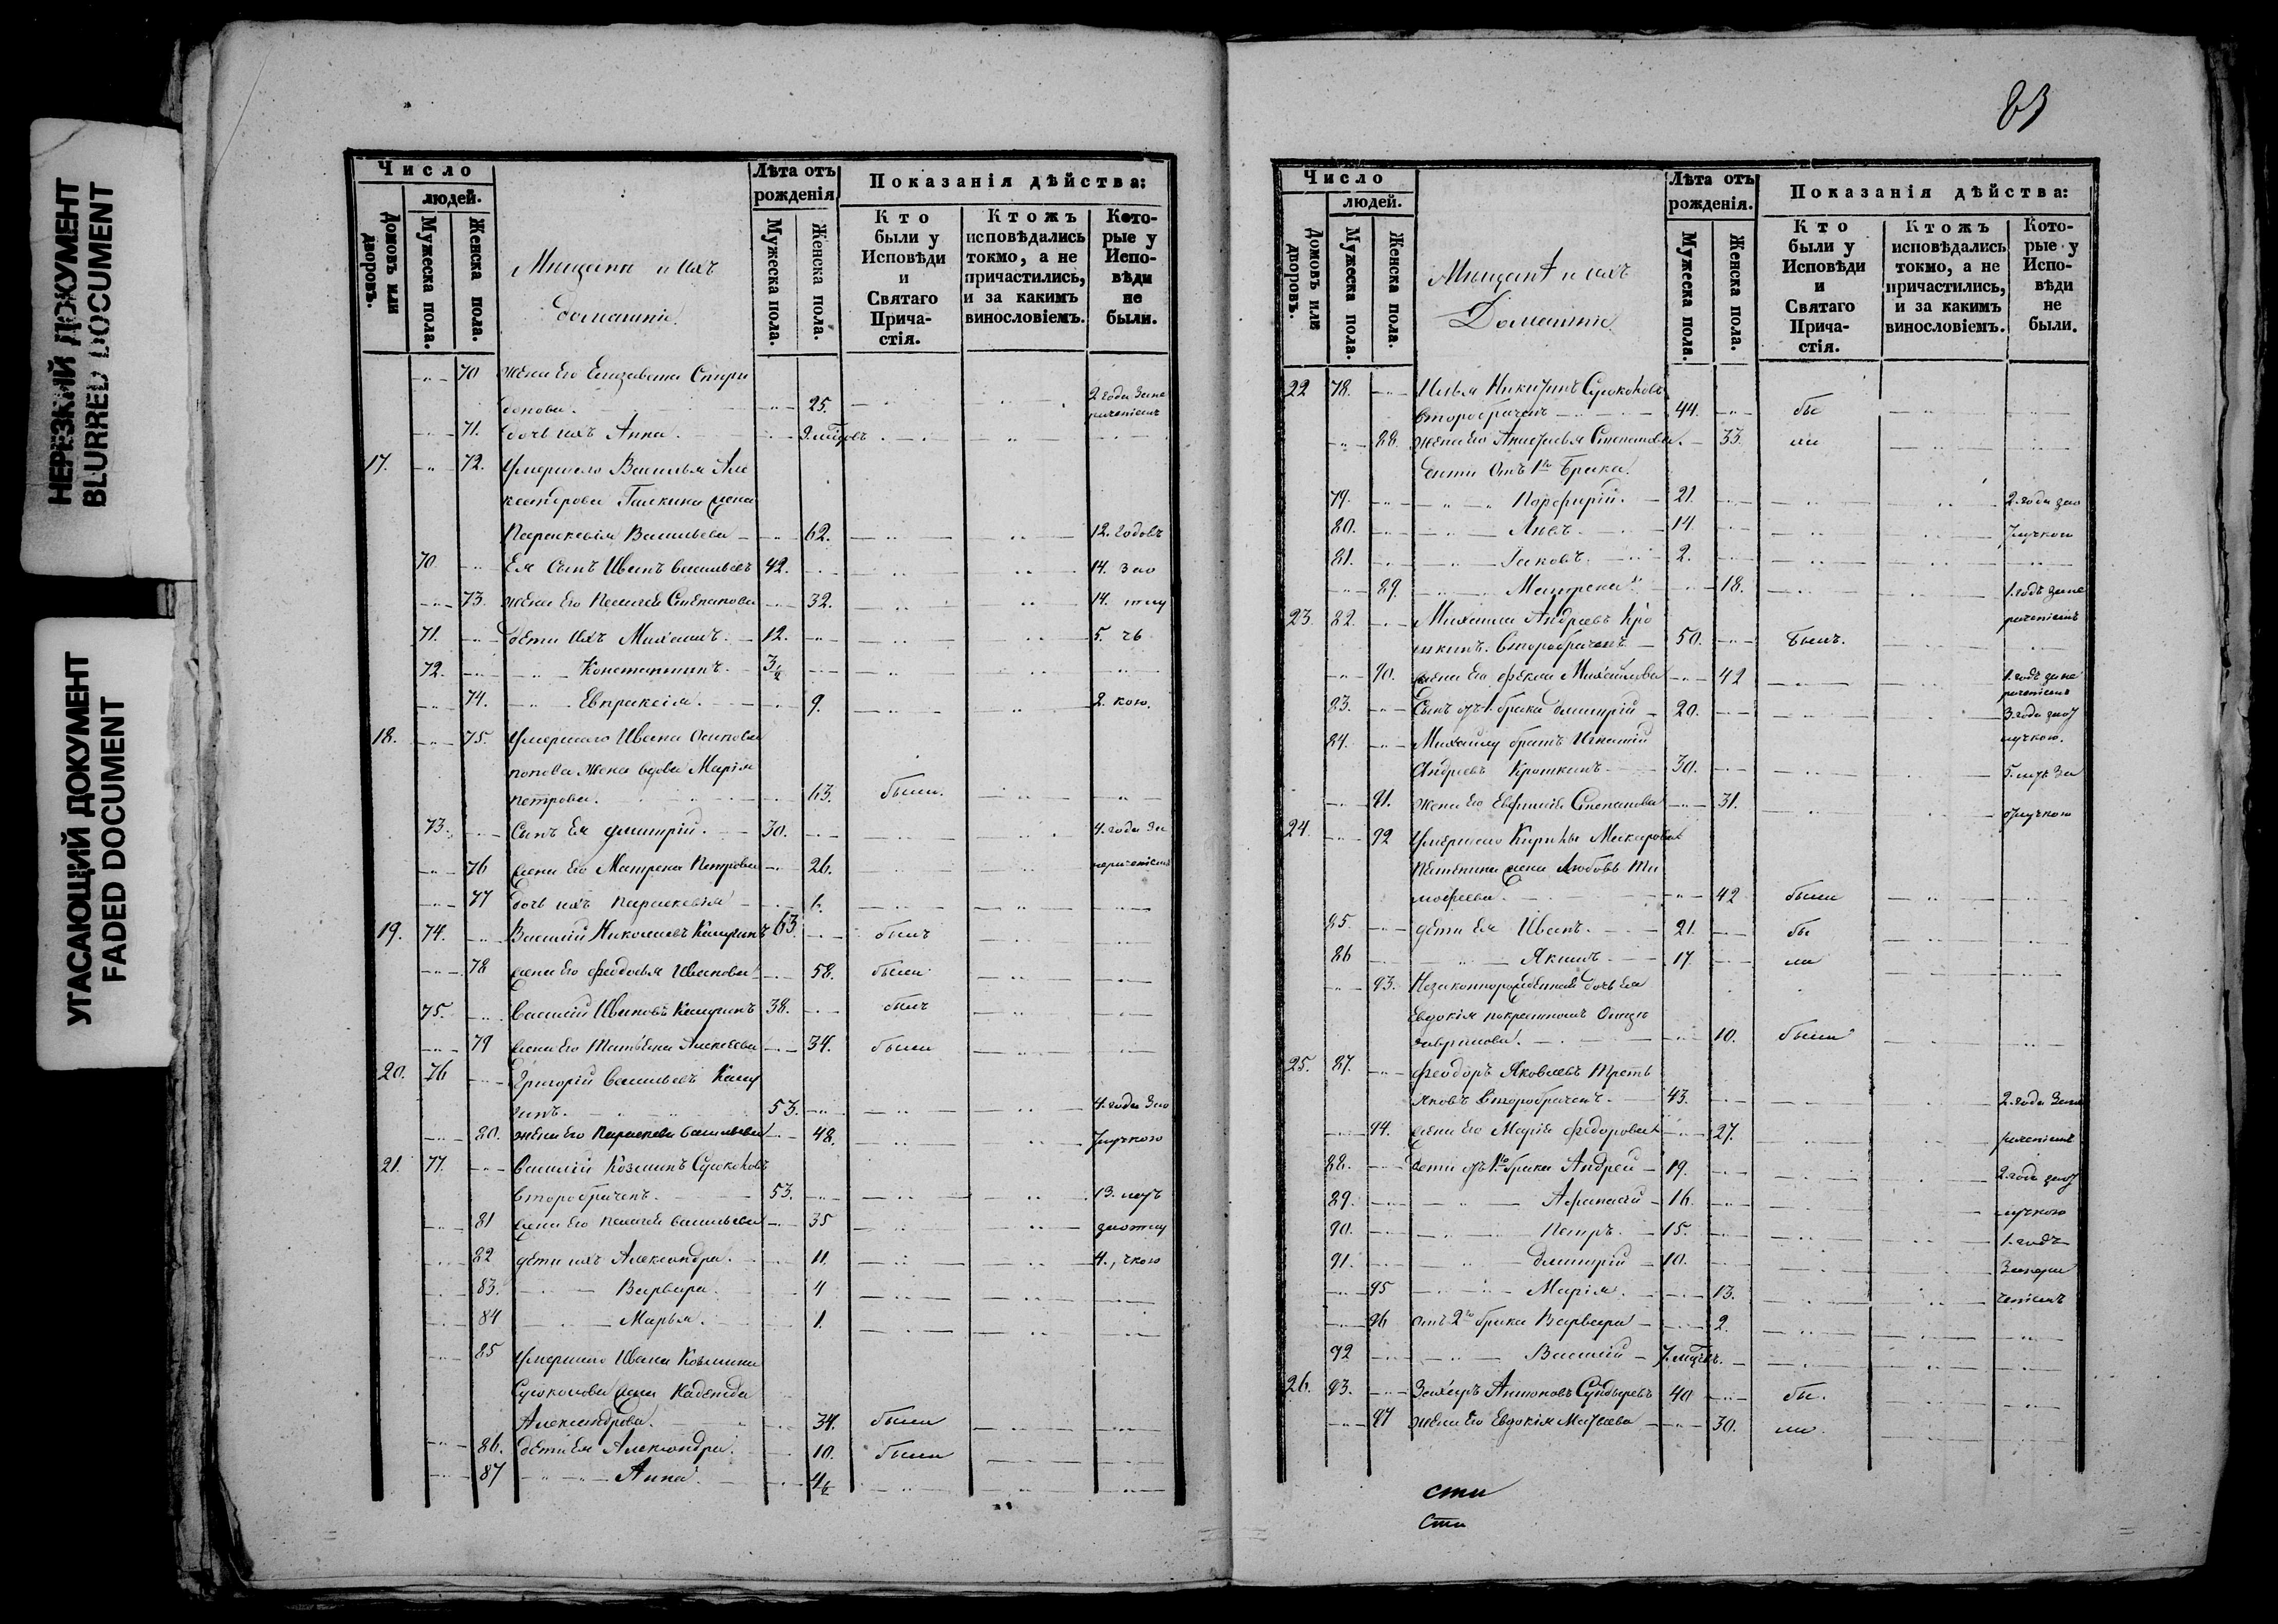 НЕРЕЗКИЙ ДОКУМЕНТ
BLURRED DOCUMENT
УГАСАЮЩИЙ ДОКУМЕНТ
FADED DOCUMENT
Число
людей.
Домовъ или дворовъ.
Мужеска пола.
Женска пола.
Мещане и ихъ
домашніе.
Лѣта отъ
рожденія
Мужеска пола.
Женска пола.
Показанія дѣйства:
Кто
были у
Исповѣди
и
Святаго
Прича-
стія.
Ктожъ
исповѣдались
токмо, а не
причастились,
и за какимъ
винословіемъ.
Кото-
рые у
Испо-
вѣди
не
были.
70 жена его Елизавета Спири
донова. 25. 2 года за не
71. дочь ихъ Анна.
17. 72. Умершаго Василья Але
ксандрова Галкина жена
Параскевія Васильева 62. 12. годовъ
70 Ея сынъ Иванъ Васильевъ 42. 14. за о
73. жена его Пелагея Степанова 32. 14. тлу
71. дети ихъ Михаилъ. 12. 5. чь
72. Константинъ. 3 1/2
74. Евпраксія. 9. 2. кою.
18. 75. Умершаго Ивана Осипова
попова жена вдова Марія
петрова. 63. была.
73. Сынъ Ея Дмитрій. 30. 4. года за
76 жена его Матрена Петрова 26. нерачениемъ
77 дочь ихъ Параскевія 1.
19. 74. Василій Николаевъ 63. былъ
78 жена его Феодосья Иванова 58. была
75. Василій Ивановъ 38. былъ
79 жена его Татьяна Алексеева 34. была
20. 76 Григорій Васильевъ
53. 4. года за о
80. жена его Параскева Васильева 48. тлучкою
21. 77. Василій Козминъ
второбраченъ. 53. 13. летъ
81 жена его Пелагея Васильева 35 за отлу
82 дети ихъ Александра. 11. 4. чкою
83. Варвара. 4
84 Марья. 1.
85 Умершаго Ивана Козмина
жена Надежда
Александрова. 34. была
86. дети Ея Александра. 10. была
87 Анна. 4 1/2
83
Число
людей.
Домовъ или дворовъ.
Мужеска пола.
Женска пола.
Мещане и ихъ
Домашніе.
Лѣта отъ
рожденія.
Мужеска пола.
Женска пола.
Показанія дѣйства:
Кто
были у
Исповѣди
и
Святаго
Прича-
стія.
Ктожъ
исповѣдались
токмо, а не
причастились,
и за какимъ
винословіемъ.
Кото-
рые у
Испо-
вѣди
не
были.
22 78. Илья Никитинъ
второбраченъ 44. бы
88. жена его Степанова. 33. ли
дети отъ 1го брака.
79. Порфирій. 21. 2. года за о
80. Левъ. 14. тлучкою
81. Іаковъ. 2.
89. Матрена 18. 1. годъ за не
23. 82. Михаила Андреевъ Кро
шкинъ. второбраченъ 50. былъ. рачениемъ
90. жена его Фекла Михайлова 42 1. годъ за не
рачениемъ
83. Сынъ отъ 1. брака Дмитрій 20. 3. года за от
84. Михаилу братъ Игнатій лучкою.
Андреевъ Крошкинъ 30. 5. летъ за
91. жена его Евфимія Степанова 31. отлучкою
24. 92 Умершаго Кирилы Макарова
жена Любовь Ти
мофеева. 42 была
85. дети Ея Иванъ. 21. бы
86 Якимъ 17. ли
93. Незаконнорожденная дочь Ея
Евдокія по крестномъ Отцѣ
10. была
25. 87. Феодоръ Яковлевъ Треть
яковъ второбраченъ. 43. 2. года за не
94. жена его Марія Федорова 27. рачениемъ
88. дети отъ 1го брака Андрей 19. 2. года за от
89. Афанасій 16. лучкою
90. Петръ. 15. 1. годъ
91. Дмитрій 10. за нера
95 Марія. 13. чениемъ
96 отъ 2го брака Варвара 2.
92 Василій
26. 93. Захаръ Антоновъ 40 бы.
97 жена его Евдокія Матвеева 30. ли.
сти
сти